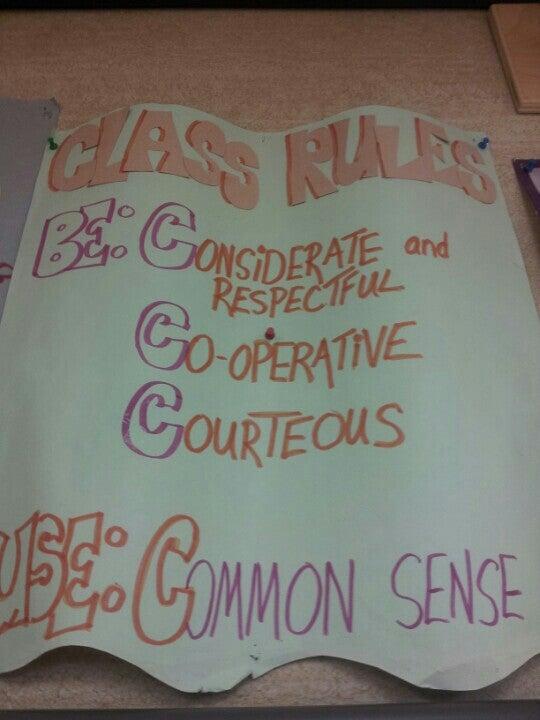 CLASS RULES
BE: CONSIDERATE and
RESPECTFUL
CO-OPERATIVE
COURTEOUS
USE: COMMON SENSE